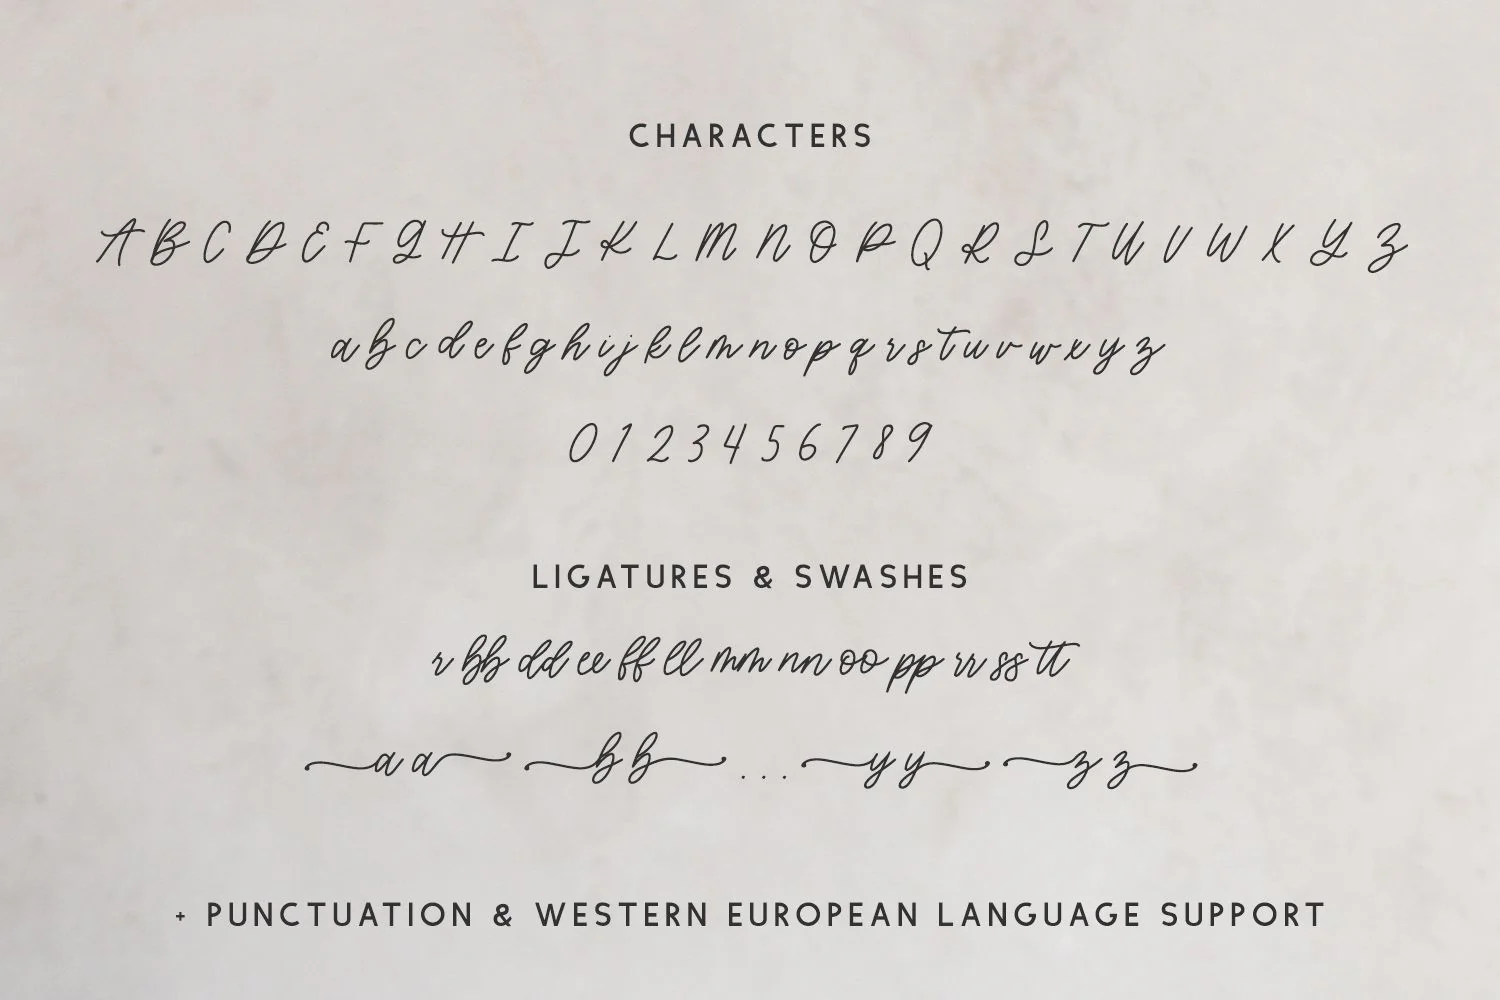 CHARACTERS
A B C D E F G H I J K L M N O P Q R S T U V W X Y Z
a b c d e f g h i j k l m n o p q r s t u v w x y z
0 1 2 3 4 5 6 7 8 9
LIGATURES & SWASHES
r bb dd ee ff ll mm nn oo pp rr ss tt
a a b b ... y y z z
+ PUNCTUATION & WESTERN EUROPEAN LANGUAGE SUPPORT